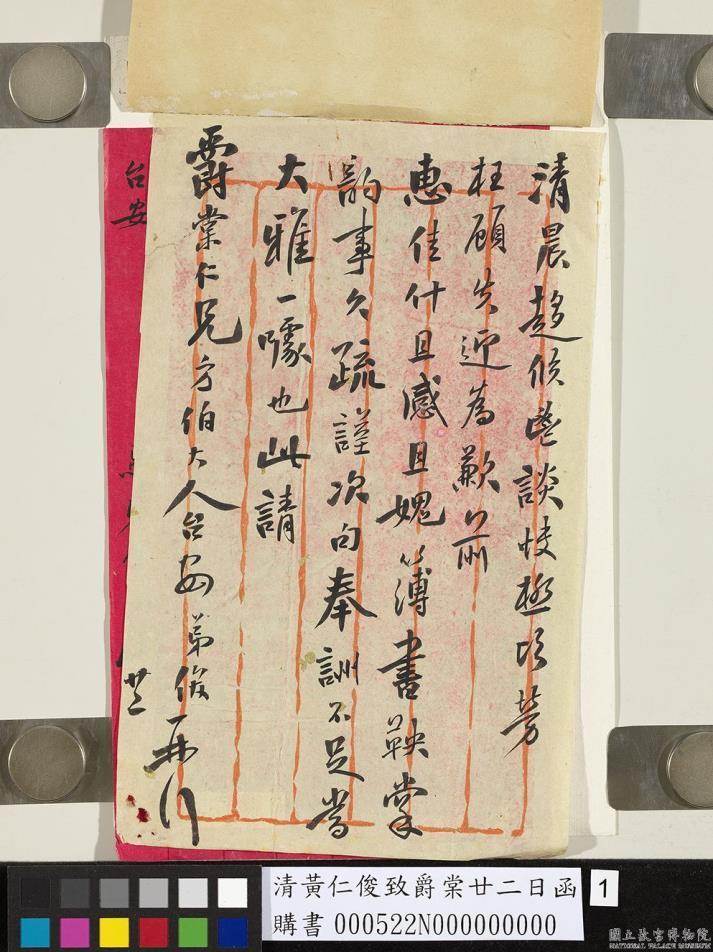 清晨趨候暢談快極頃勞
枉顧失迎為歉前
惠佳什且感且媿簿書鞅掌
韵事久疏謹次句奉詶不足當
大雅一噱也此請
爵棠仁兄方伯大人台安 弟俊再行
廿二
台安
清黃仁俊致爵棠廿二日函
購書 000522N000000000
1
國立故宮博物院
NATIONAL PALACE MUSEUM